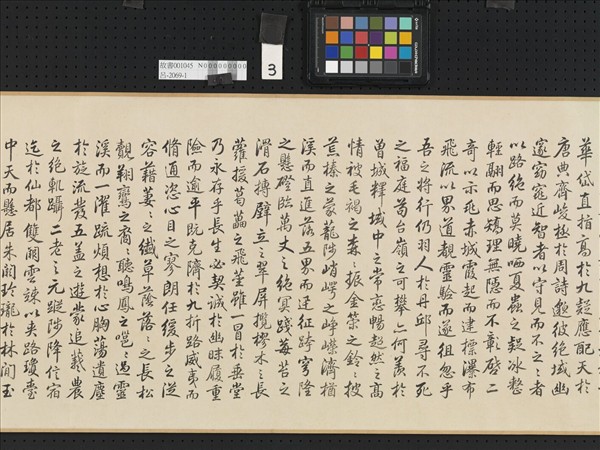 故書001045 N000000000
呂-2069-1
3
華岱直指高於九疑應配天於
唐典齊峻極於周詩邈彼絕域幽
邃窈窕近智者以守見而不之之者
以路絕而莫曉哂夏蟲之疑冰整
輕翮而思矯理無隱而不彰啓二
奇以示兆赤城霞起而建標瀑布
飛流以界道覩靈驗而遂徂忽乎
吾之將行仍羽人於丹丘尋不死
之福庭苟台嶺之可攀亦何羨於
曾城釋域中之常戀暢超然之高
情被毛褐之森々振金策之鈴々披
荒榛之蒙蘢陟峭崿之崢嶸濟楢
溪而直進落五界而迅征跨穹隆
之懸磴臨萬丈之絕冥踐莓苔之
滑石搏壁立之翠屏攬樛木之長
蘿援葛藟之飛莖雖一冒於垂堂
乃永存乎長生必契誠於幽昧履重
險而逾平既克隮於九折路威夷而
脩通恣心目之寥朗任緩步之從
容藉萋々之纖草蔭落々之長松
覿翔鸞之裔々聽鳴鳳之嗈々過靈
溪而一濯疏煩想於心胸蕩遺塵
於旋流發五蓋之遊蒙追羲農
之絕軌躡二老之玄蹤陟降信宿
迄於仙都雙闕雲竦以夾路瓊臺
中天而懸居朱闕玲瓏於林間玉